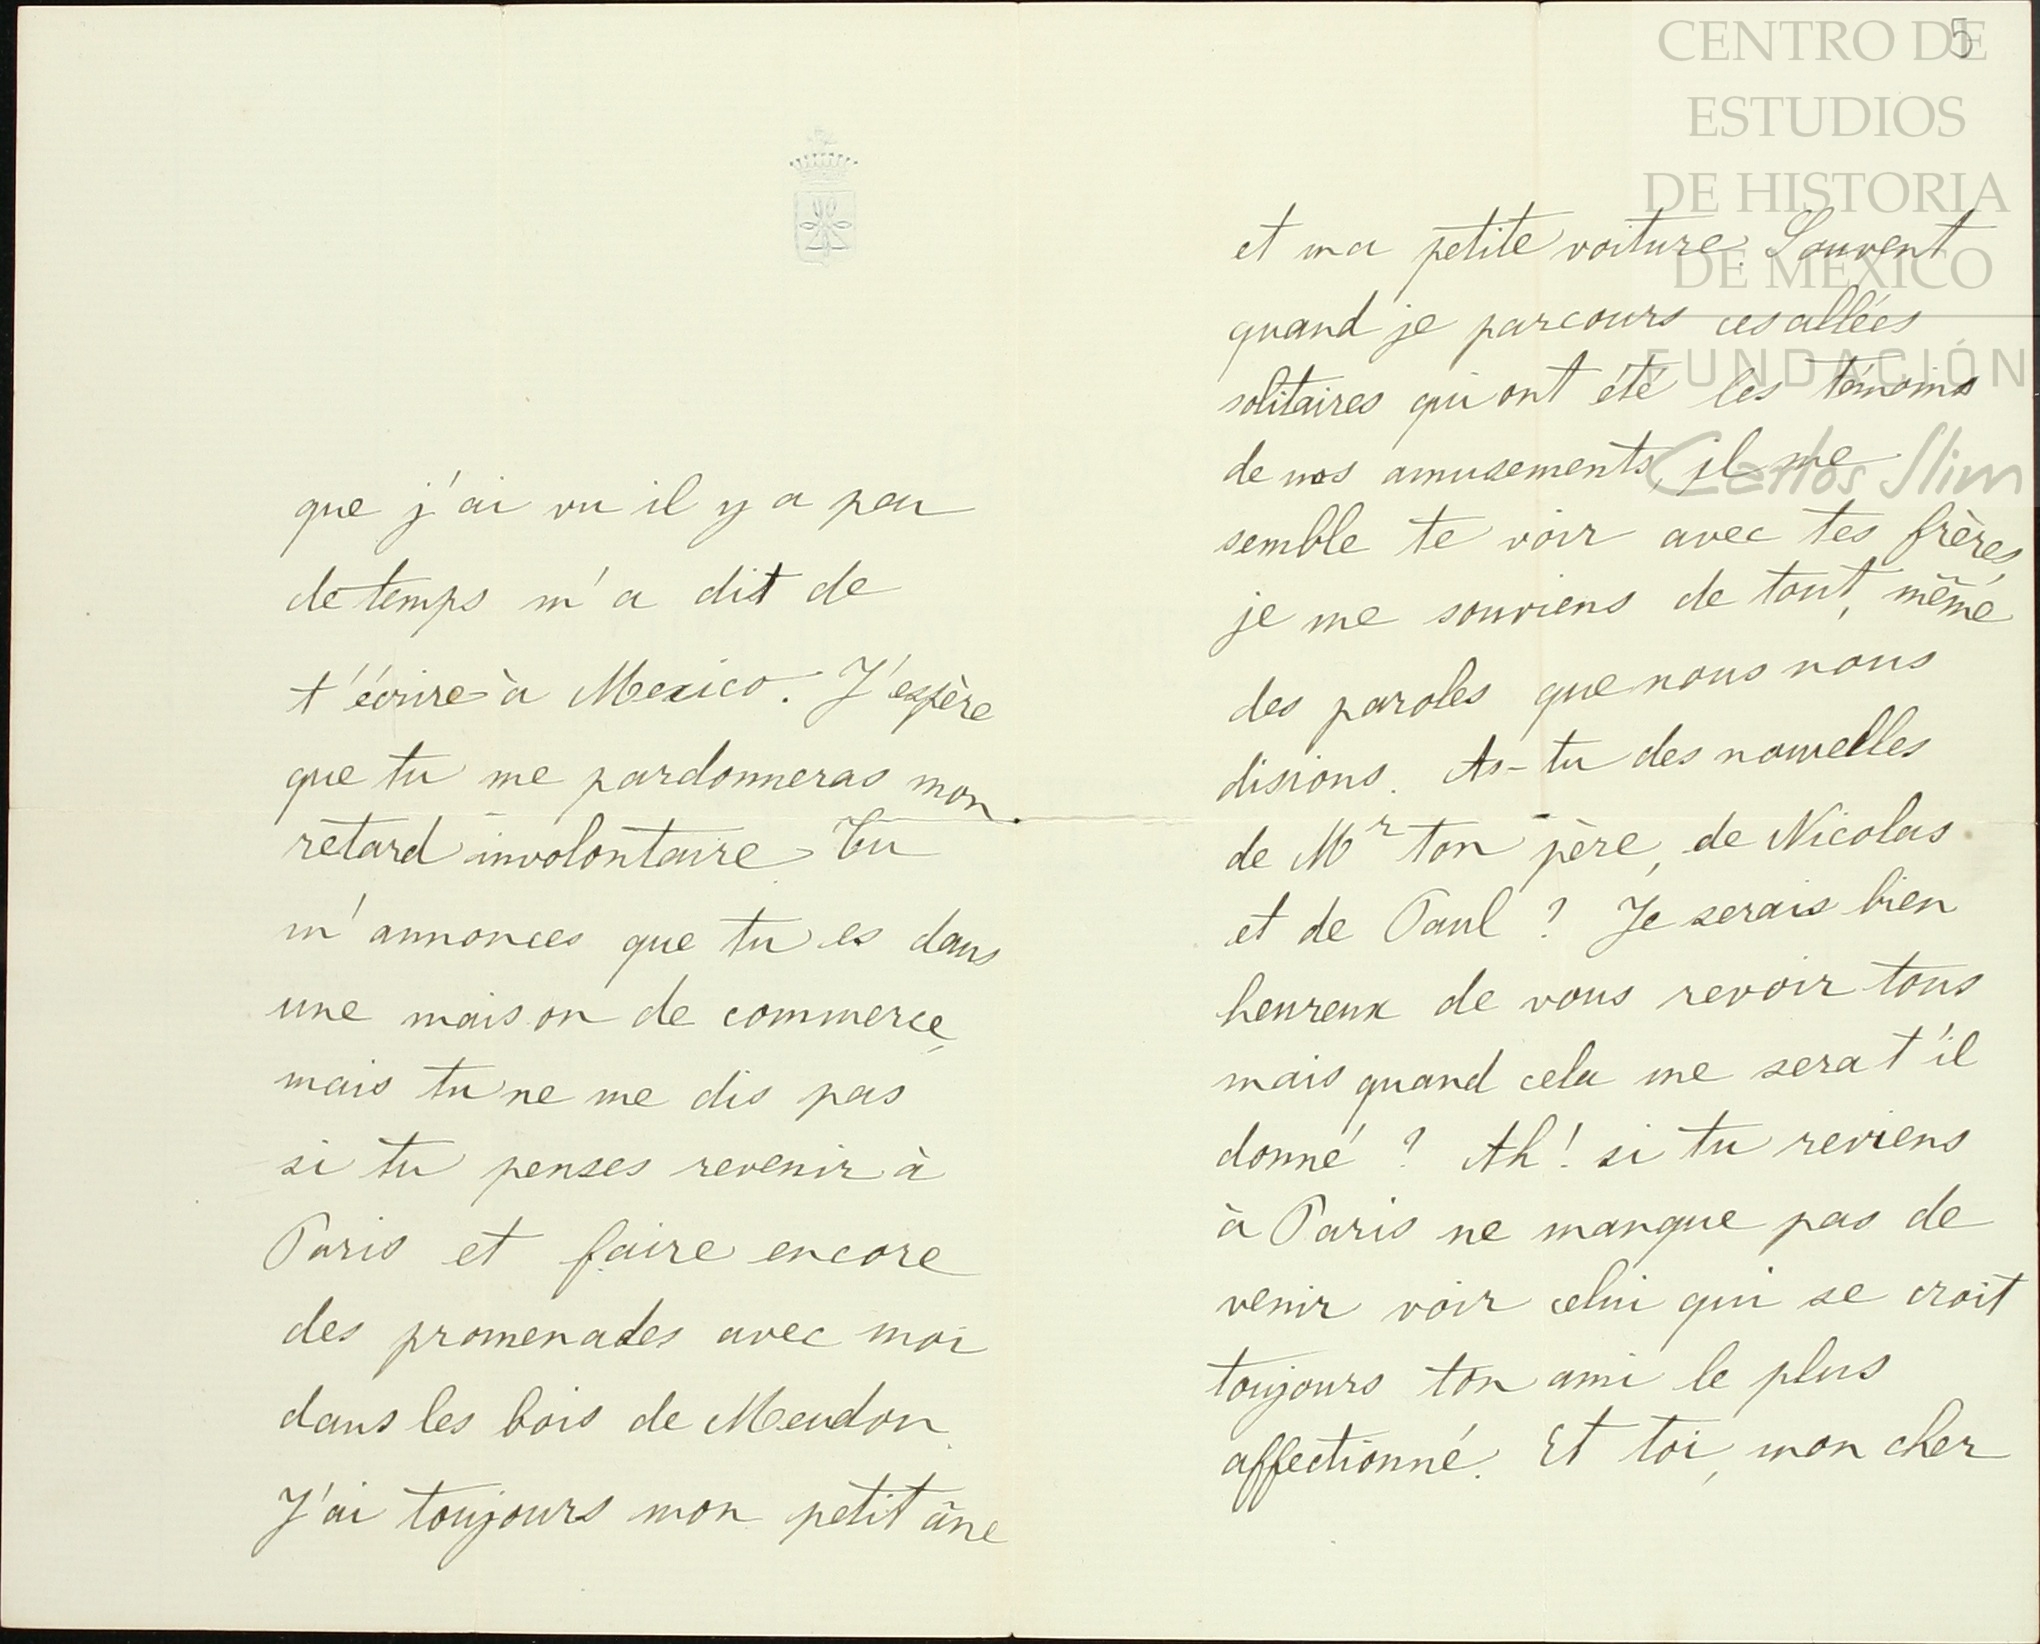 que j'ai vu il y a peu
de temps m'a dit de
t'écrire à Mexico. J'espère
que tu me pardonneras mon
retard involontaire. Tu
m'annonces que tu es dans
une maison de commerce,
mais tu ne me dis pas
si tu penses revenir à
Paris et faire encore
des promenades avec moi
dans les bois de Meudon.
J'ai toujours mon petit âne
5
et ma petite voiture. Souvent
quand je parcours ces allées
solitaires qui ont été les témoins
de nos amusements, il me
semble te voir avec tes frères,
je me souviens de tout, même
des paroles que nous nous
disions. As-tu des nouvelles
de Mr ton père, de Nicolas
et de Paul ? Je serais bien
heureux de vous revoir tous
mais quand cela me sera t'il
donné ? Ah ! si tu reviens
à Paris ne manque pas de
venir voir celui qui se croit
toujours ton ami le plus
affectionné. Et toi, mon cher
CENTRO DE
ESTUDIOS
DE HISTORIA
DE MEXICO
FUNDACIÓN
Carlos Slim